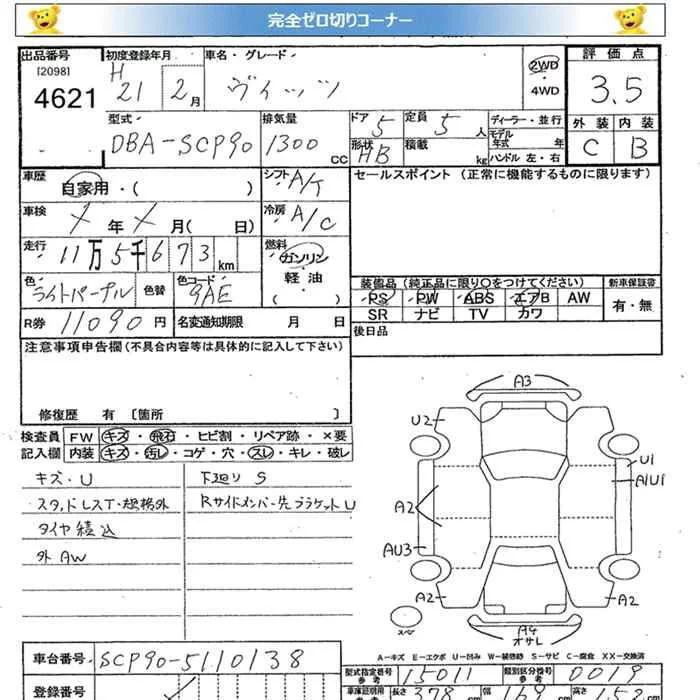 完全ゼロ切りコーナー
出品番号 初度登録年月 車名・グレード 評価点
[2098] H
4621 21 2月 ヴィッツ 2WD 3.5
・4WD
型式 排気量 ドア 5 定員 5人 ディーラー・並行 外装 内装
DBA-SCP90 1300cc 形状 HB 積載 kg モデル年式 年 C B
ハンドル 左・右
車歴 自家用・( ) シフト A/T セールスポイント (正常に機能するものに限ります)
車検 年 月( 日) 冷房 A/C
走行 11万5千673km 燃料 ガソリン
軽油
( )
色 ライトパープル 色替 色コード 9AE
装備品 (純正品に限り○をつけてください) 新車保証書
PS PW ABS エアB AW 有・無
SR ナビ TV カワ
R券 11090円 名変通知期限 月 日
後日品
注意事項申告欄(不具合内容等は具体的に記入して下さい)
修復歴 有 [箇所 ]
検査員 FW キズ・飛石・ヒビ割・リペア跡・×要
記入欄 内装 キズ・汚レ・コゲ・穴・スレ・キレ・破レ
キズ・U 下廻り S
スタッドレスT・規格外 Rサイドメンバー先ブラケットU
タイヤ積込
外AW
A3
U2
U1
A1U1
A2
AU3
A2 A2
スペア
A4
オサレ
A-キズ E-エクボ U-凹み W-補修跡 S-サビ C-腐食 XX-交換済
車台番号 SCP90-5110138
型式指定番号 参考 15011 類別区分番号 参考 0019
登録番号 車庫証明用 参考 長さ 378 cm 幅 169 高さ 152 cm